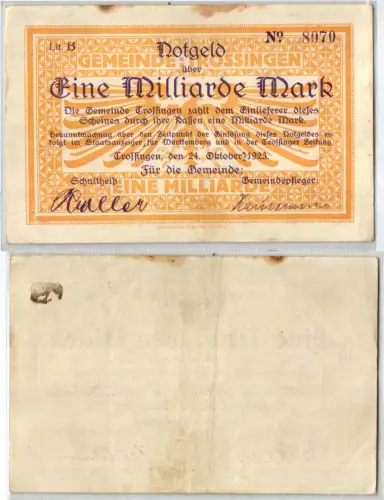 Lit. B
Notgeld
No 8070
über
GEMEINDE TROSSINGEN
Eine Milliarde Mark
Die Gemeinde Trossingen zahlt dem Einlieferer dieses
Scheines durch ihre Kassen eine Milliarde Mark.
Bekanntmachung über den Zeitpunkt der Einlösung dieses Notgeldes er-
folgt im Staatsanzeiger für Württemberg und in der Trossinger Zeitung
Trossingen, den 24. Oktober 1923.
Für die Gemeinde:
Schultheiß:
Gemeindepfleger:
EINE MILLIARDE